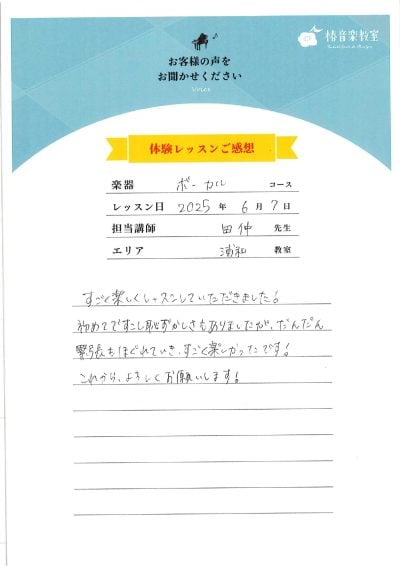 椿音楽教室
お客様の声を
お聞かせください
体験レッスンご感想
楽器 ボーカル コース
レッスン日 2025 年 6 月 7 日
担当講師 田仲 先生
エリア 浦和 教室
すごく楽しくレッスンしていただきました！
初めてですこし恥ずかしさもありましたが、だんだん
緊張もほぐれていき、すごく楽しかったです！
これから、よろしくお願いします！